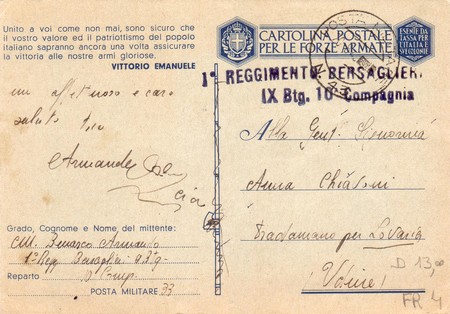 Unito a voi come non mai, sono sicuro che
il vostro valore ed il patriottismo del popolo
italiano sapranno ancora una volta assicurare
la vittoria alle nostre armi gloriose.
VITTORIO EMANUELE
un affettuoso e caro
saluto
Armando
Grado, Cognome e Nome del mittente:
Armando
1º Regg. Bersaglieri
Reparto
POSTA MILITARE 33
CARTOLINA POSTALE
PER LE FORZE ARMATE
ESENTE DA
TASSA PER
L'ITALIA E
POSTA
1º REGGIMENTO BERSAGLIERI
IX Btg. 10 Compagnia
Alla Gent. Signorina
Anna
Pradamano per
Udine
D 13,00
FR 4